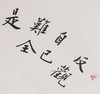 反觀
自己
難全
是